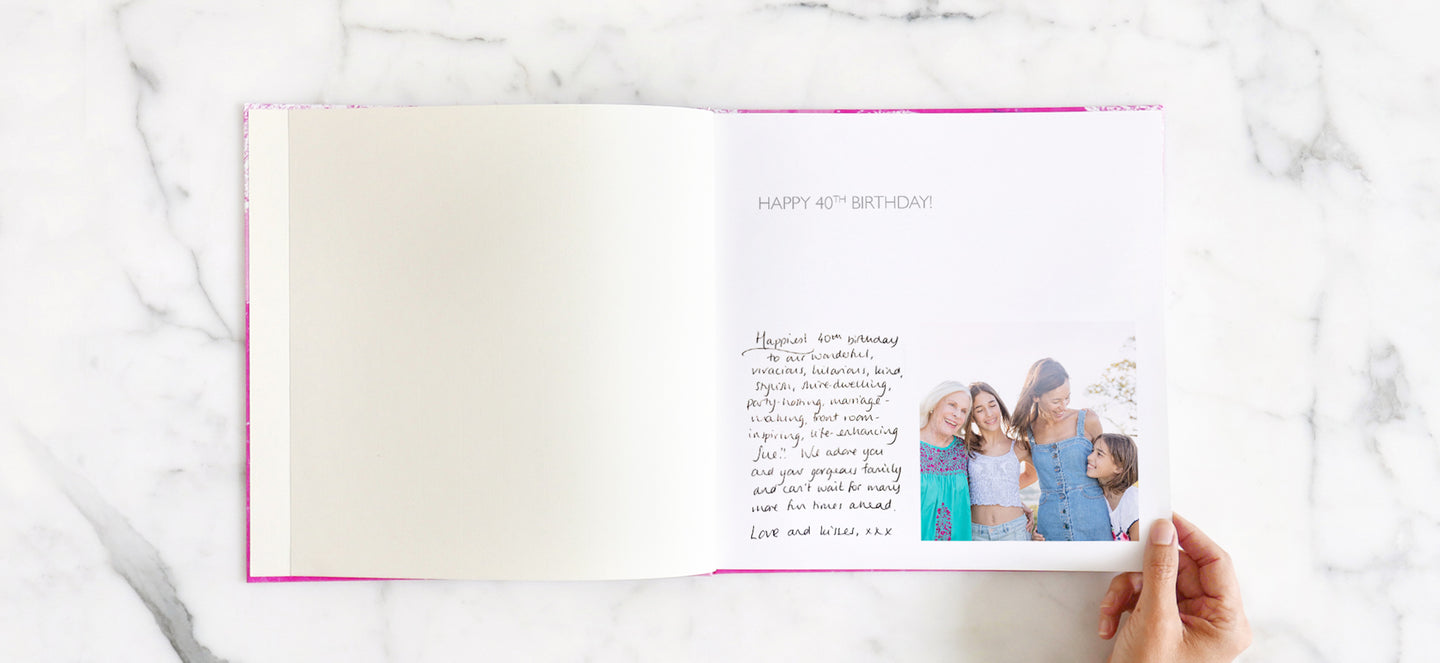 HAPPY 40TH BIRTHDAY!
Happiest 40th birthday
to our wonderful,
vivacious, hilarious, kind,
stylish, shire-dwelling,
party-hosting, marriage-
making, front room-
inspiring, life-enhancing
Sue!! We adore you
and your gorgeous family
and can't wait for many
more fun times ahead.
Love and kisses, xxx